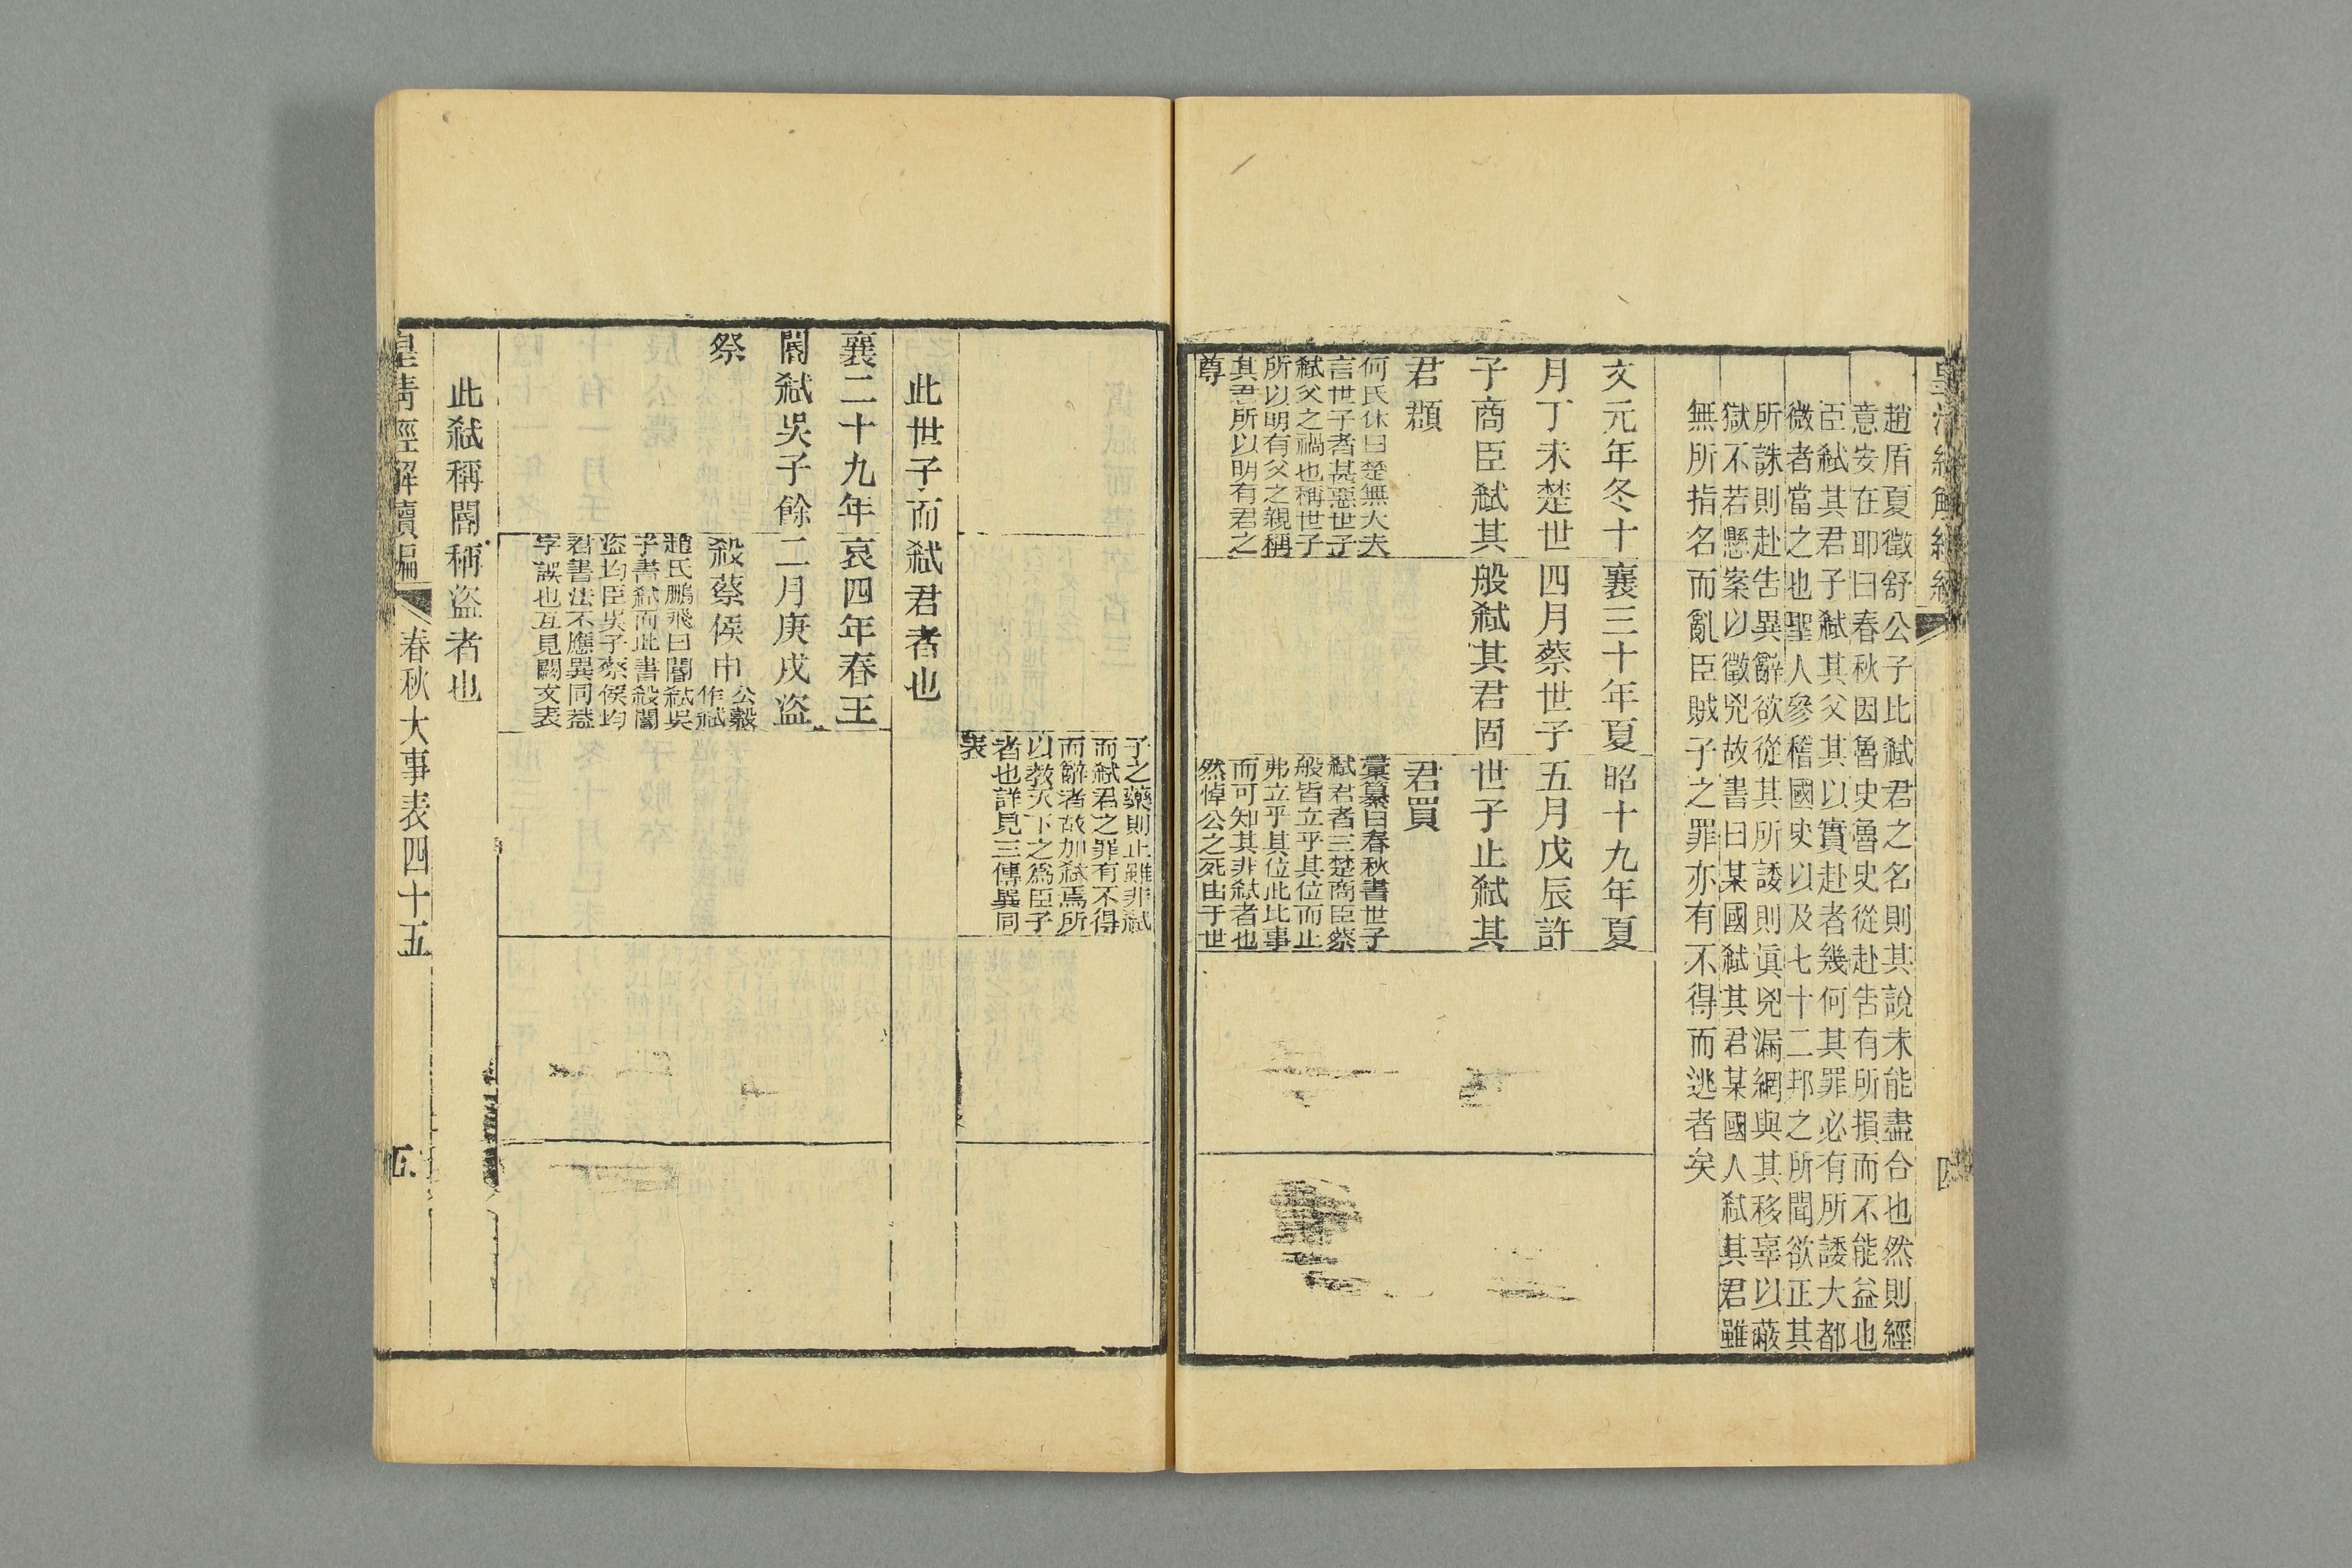 皇清經解續編
趙盾夏徵舒公子比弑君之名則其說未能盡合也然則經
意安在耶曰春秋因魯史魯史從赴告有所損而不能益也
臣弑其君子弑其父其以實赴者幾何其罪必有所諉大都
微者當之也聖人參稽國史以及七十二邦之所聞欲正其
所誅則赴告異辭欲從其所諉則眞兇漏網與其移辜以蔽
獄不若懸案以徵兇故書曰某國弑其君某國人弑其君雖
無所指名而亂臣賊子之罪亦有不得而逃者矣
文元年冬十
月丁未楚世
子商臣弑其
君頵
何氏休曰楚無大夫
言世子者甚惡世子
弑父之禍也稱世子
所以明有父之親稱
其君所以明有君之
尊
襄三十年夏
四月蔡世子
般弑其君固
昭十九年夏
五月戊辰許
世子止弑其
君買
彙纂曰春秋書世子
弑君者三楚商臣蔡
般皆立乎其位而止
弗立乎其位此比事
而可知其非弑者也
然悼公之死由于世
子之藥則止雖非弑
而弑君之罪有不得
而辭者故加弑焉所
以敎天下之爲臣子
者也詳見三傳異同
表
此世子而弑君者也
襄二十九年
閽弑吳子餘
祭
哀四年春王
二月庚戌盜
殺蔡侯申公穀
作弑
趙氏鵬飛曰閽弑吳
子書弑而此書殺閽
盜均臣吳子蔡侯均
君書法不應異同蓋
字誤也互見闕文表
此弑稱閽稱盜者也
皇清經解續編
春秋大事表四十五
五